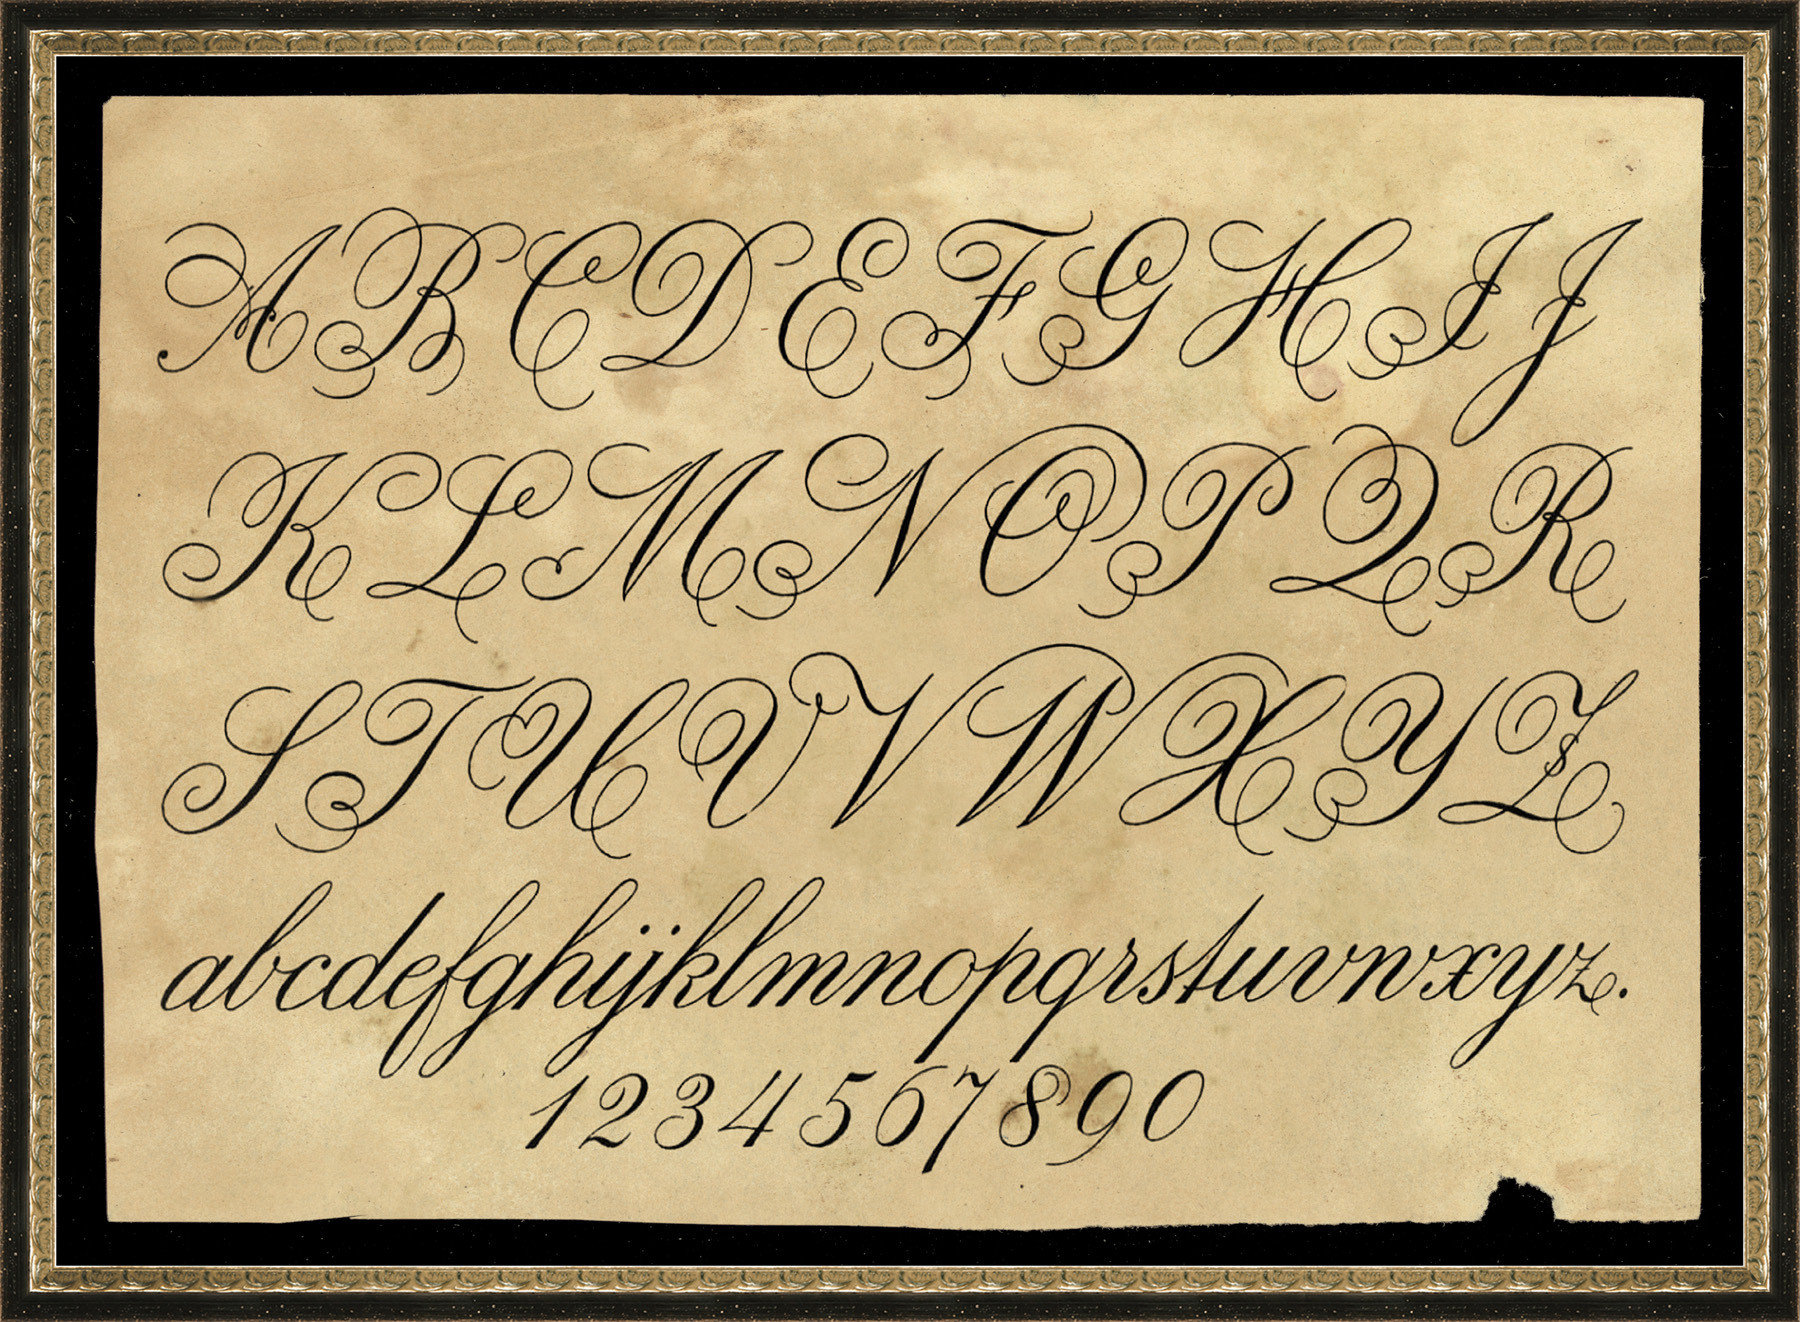 ABCDEFGHIJ
KLMNOPQR
STUVWXYZ
abcdefghijklmnopqrstuvwxyz.
1234567890